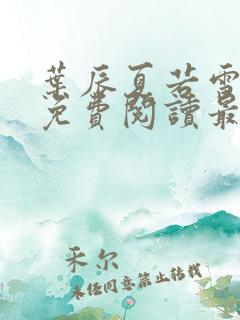 葉辰夏若雪
免費閱讀最
禾尔
未经同意禁止转载